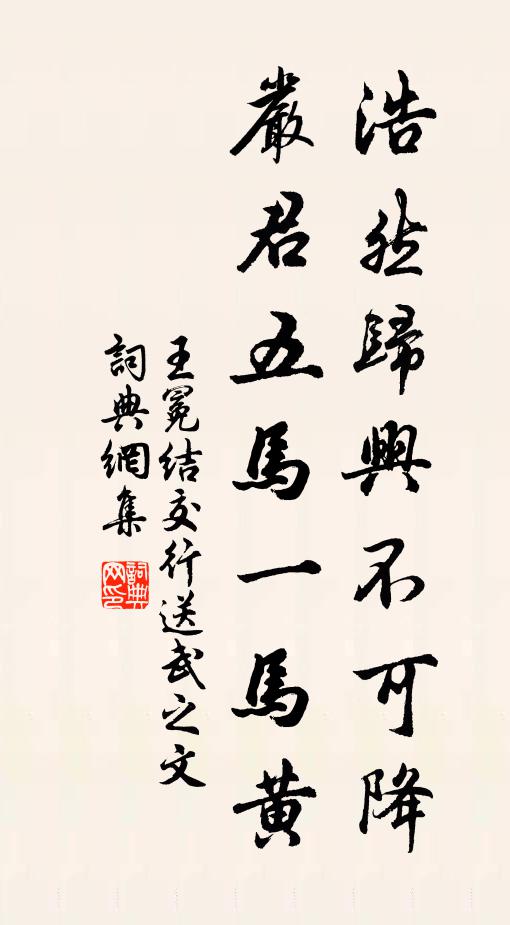 浩然歸興不可降
嚴君五馬一馬黃
王冕結交行送武之文
詞典網集
詞典网印